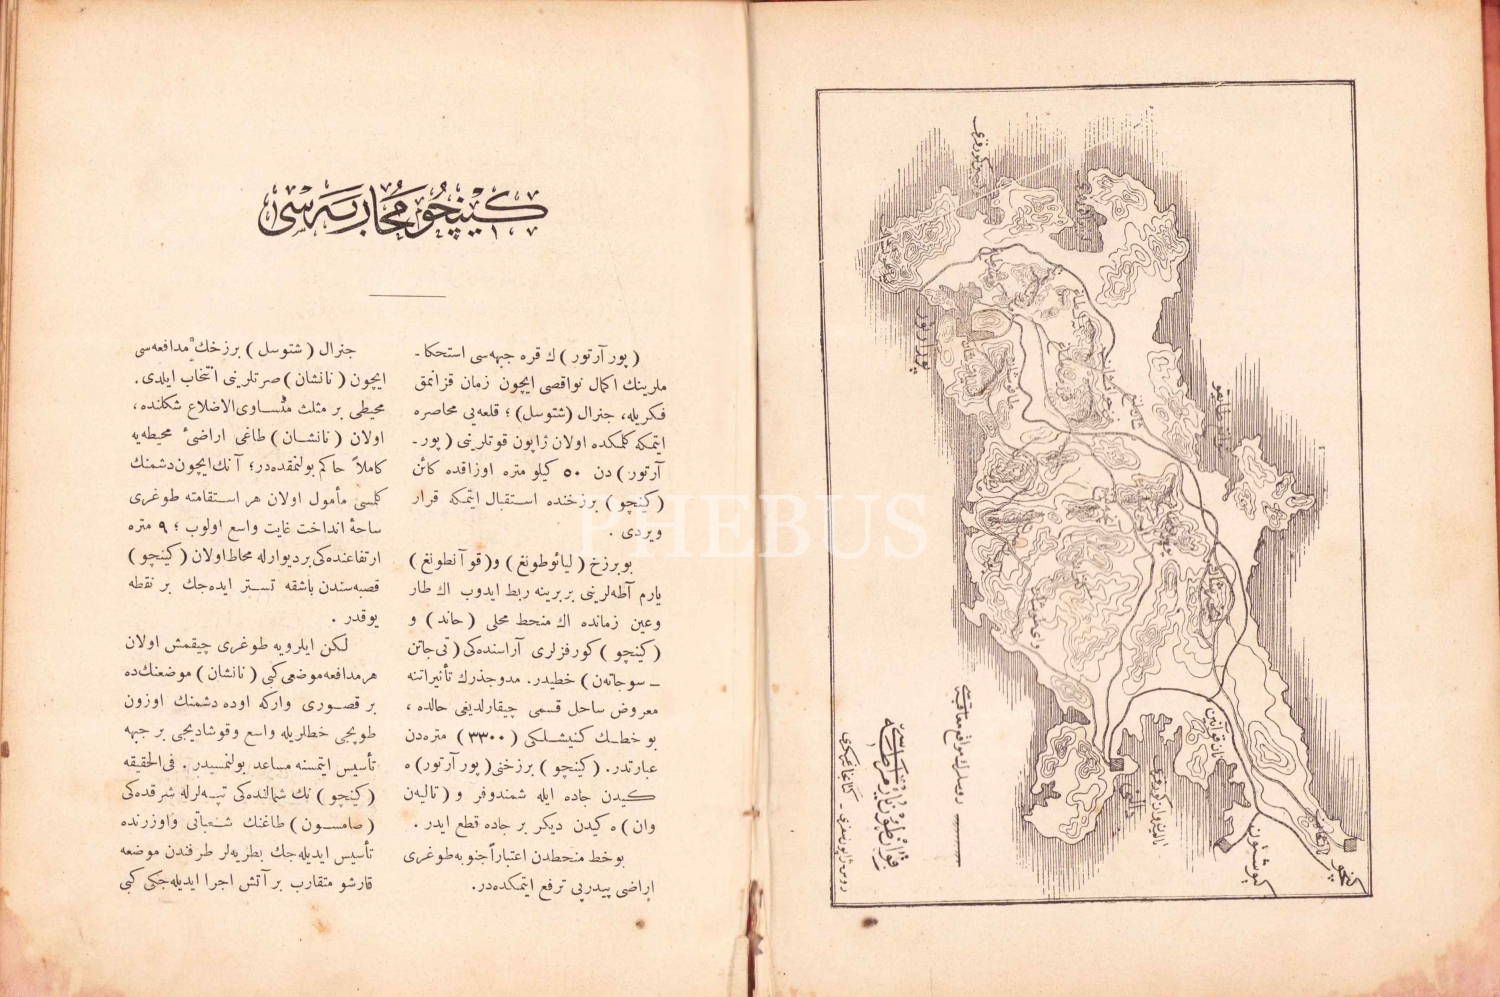 كينچو محاربه‌سی
(پور آرتور) ك قره جبهه‌سی استحكا-
ملرينك اكمال نواقصی ايچون زمان قزانمق
فكريله، جنرال (شتوسل)؛ قلعه‌يی محاصره
ايتمكه كلمكده اولان ژاپون قوتلرينی (پور-
آرتور) دن ٥٠ كيلو متره اوزاقده كائن
(كينچو) برزخنده استقبال ايتمكه قرار
ويردی .
بو برزخ (ليائوطونغ) و(قوآنطونغ)
يارم آطه‌لرينی بربرينه ربط ايدوب اك طار
وعين زمانده اك منحط محلی (حاند) و
(كينچو) كورفزلری آراسنده‌كی (تی‌جاتن
ـ سوجاته‌ن) خطيدر. مدوجذرك تأثيراتنه
معروض ساحل قسمی چيقارلديغی حالده،
بو خطك كنيشلكی (٣٣٠٠) متره‌دن
عبارتدر. (كينچو) برزخنی (پور آرتور) ه
كيدن جاده ايله شمندوفر و (تاليه‌ن
وان) ه كيدن ديكر بر جاده قطع ايدر .
بو خط منحطدن اعتباراً جنوبه طوغری
اراضی پيدرپی ترفع ايتمكده‌در.
جنرال (شتوسل) برزخك مدافعه‌سی
ايچون (نانشان) صرتلرينی انتخاب ايلدی.
محيطی بر مثلث متساوی‌الاضلاع شكلنده،
اولان (نانشان) طاغی اراضیٔ محيطه‌يه
كاملاً حاكم بولنمقده‌در؛ آنك ايچون دشمنك
كلمسی مأمول اولان هر استقامته طوغری
ساحهٔ انداخت غايت واسع اولوب؛ ٩ متره
ارتفاعنده‌كی بر ديوارله محاط اولان (كينچو)
قصبه‌سندن باشقه تستر ايده‌جك بر نقطه
يوقدر .
لكن ايلرويه طوغری چيقمش اولان
هر مدافعه موضعی كبی (نانشان) موضعنك ده
بر قصوری واركه اوده دشمنك اوزون
طوپجی خطلريله واسع وقوشاديجی بر جبهه
تأسيس ايتمسنه مساعد بولنمسيدر . فی‌الحقيقه
(كينچو) نك شمالنده‌كی تپه‌لرله شرقده‌كی
(صامسون) طاغنك شعباتی واوزرنده
تأسيس ايديله‌جك بطريه‌لر طرفندن موضعه
قارشو متقارب بر آتش اجرا ايديله‌جكی كبی
پور آرتور
دالنی
كينچو
قوانطونغ ياريم آطه‌سی خريطه‌سی
روسلرك مواقع متعاقبه‌سی
PHEBUS